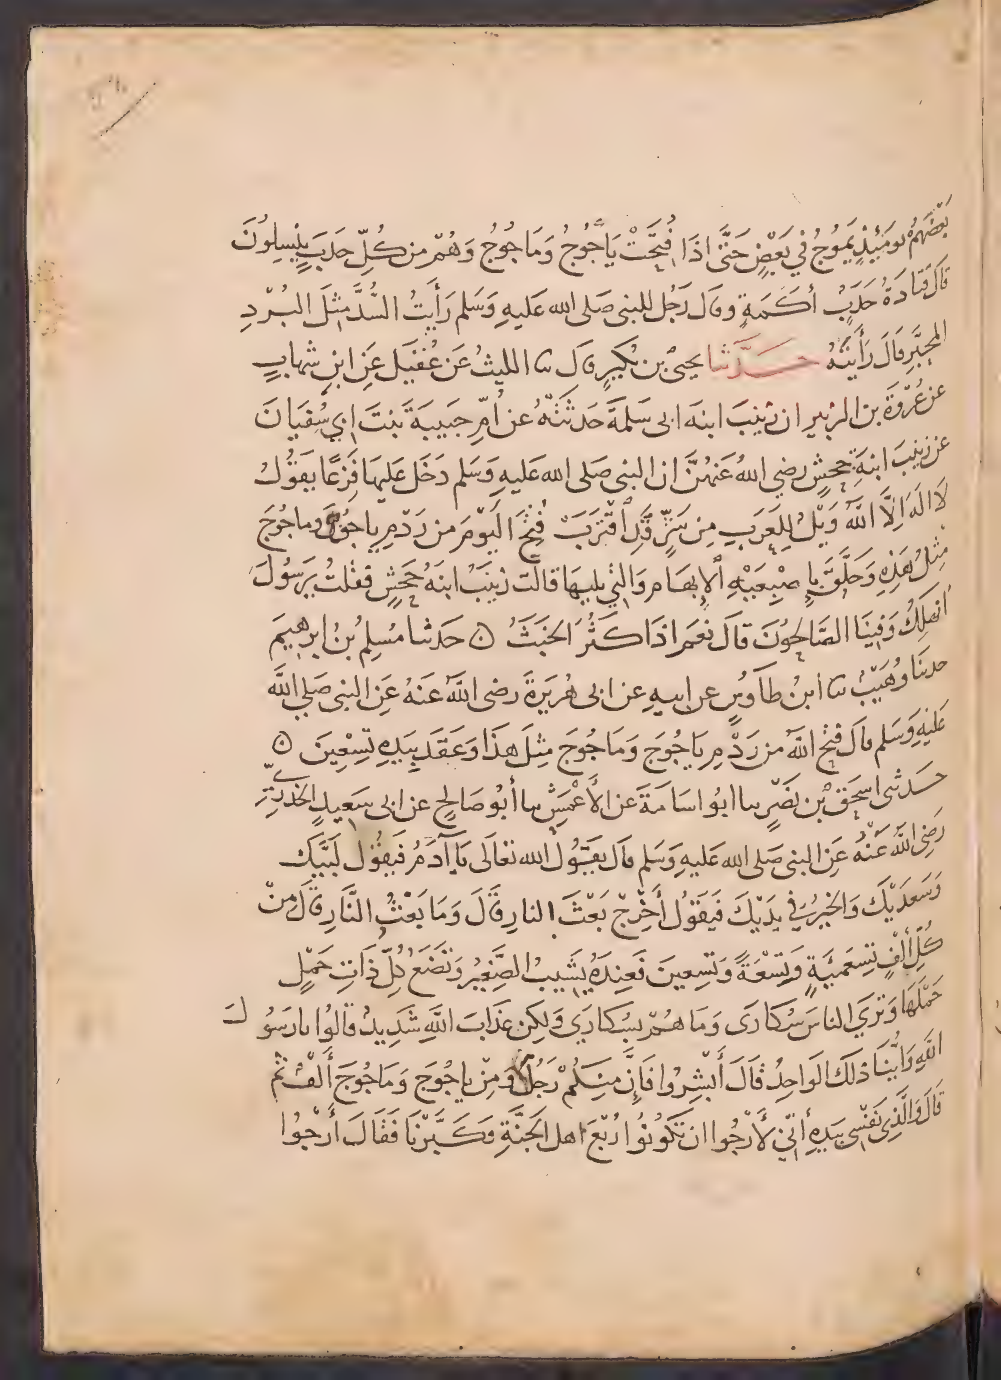 بَعْضَهُمْ يومَئِذٍ يَمُوجُ فِي بَعْضٍ حَتَّى اذَا فُتِحَتْ يَأْجُوجُ وَمَاجُوجُ وَهُمْ من كُلِّ حَدَبٍ يَنْسِلُونَ
قَالَ قَتَادَةُ حَدَبٍ أكَمَةٍ وقال رَجُل للنبى صَلى الله عَليهِ وَسَلم رَأَيتُ السُّدَّ مِثلَ البُرْدِ
المحبَّرِ قَالَ رَأَيْتَهُ حَدَّثنا يحيىٰ بن بُكَيرٍ قال ثنا الليثُ عَن عُقَيلٍ عَنِ ابنِ شهابٍ
عن عُرْوَةَ بن الزبير ان زَينَبَ ابنَة ابى سَلمَةَ حَدثَتْهُ عن أُمِّ حَبيبَةَ بنتَ ابي سُفيَانَ
عن زينبَ ابنةِ جحشٍ رضي اللهُ عَنهُنَّ ان النبى صَلى الله عَليهِ وَسَلم دَخَلَ عَليهَا فَزِعًا يَقوُلُ
لَا الهَ الَّا اللهُ وَيْلٌ لِلعَرَبِ مِن شَرٍّ قَدِ اقْتَرَبَ فُتِحَ اليَوْمَ من رَدْمِ ياجُوجَ وماجُوجَ
مِثلُ هَذِهِ وَحَلَّقَ بإصْبعَيْهِ الإبهَامِ وَالتي يليهَا قالت زينَبُ ابنَةُ جَحشٍ فقلتُ يرَسُولَ
انَهلِكُ وَفينَا الصَّالحِوُنَ قالَ نَعَم اذَا كَثُرَ الخبَثُ ۞ حَدثنا مُسلِم بنُ ابرهِيمَ
حدثنَا وُهَيْبٌ ثنا ابنُ طاَوسٍ عن ابيهِ عن ابى هُرَيرَةَ رضى اللهُ عَنهُ عَنِ النبى صَلي الله
عَليهِ وَسَلم قال فَتِحَ اللهُ من رَدْمِ يَاجُوجَ وَمَاجُوجَ مِثلَ هذَا وَعَقَدَ بِيَدِهِ تِسْعِينَ ۞
حَدثنى اسحَق بْن نَصْرٍ ثنا ابوُ اسَامَةَ عَن الأعْمَشِ ثنا أبُو صَالحٍ عن ابى سَعيدٍ الخُدرِيِّ
رَضِى اللهُ عَنْهُ عَنِ النبى صَلى الله عَليهِ وَسَلم قال يَقوُلُ الله تعَالَى يَا آدَمُ فَيقُولُ لَبَّيْكَ
وَسَعدَيْكَ وَالخيرُ في يدَيْكَ فَيَقوُلُ أخْرِجْ بَعْثَ النار قَالَ وَمَا بَعْثُ النَّارِ قالَ مِنْ
كُلِّ ألْفٍ تِسعَمئِةٍ وَتِسْعَةً وَتِسعِينَ فَعِندَهُ يَشيبُ الصَّغِيرُ وَتَضَعُ كُلُّ ذَاتِ حَمْلٍ
حَمْلَهَا وَتَرَي الناسَ سُكارَى وَمَا هُمْ بِسُكارَي وَلكِن عَذَابَ اللهِ شَدِيدٌ قالوُا يارَسُولَ
اللهِ وَأَيُّنَا ذلكَ الوَاحِدُ قَالَ أبْشِرُوا فَإنَّ مِنكُمْ رَجُل وَمِنْ ياجُوجَ وَمَاجُوجَ أَلْفٌ ثُم
قَالَ وَالَّذِى نَفْسِى بيَدِهِ أنِّي لَأرْجُوا ان تَكوُنُوا رُبْعَ اهل الجَنَّةِ فكَبَّرْنَا فَقَالَ أرْجُوا